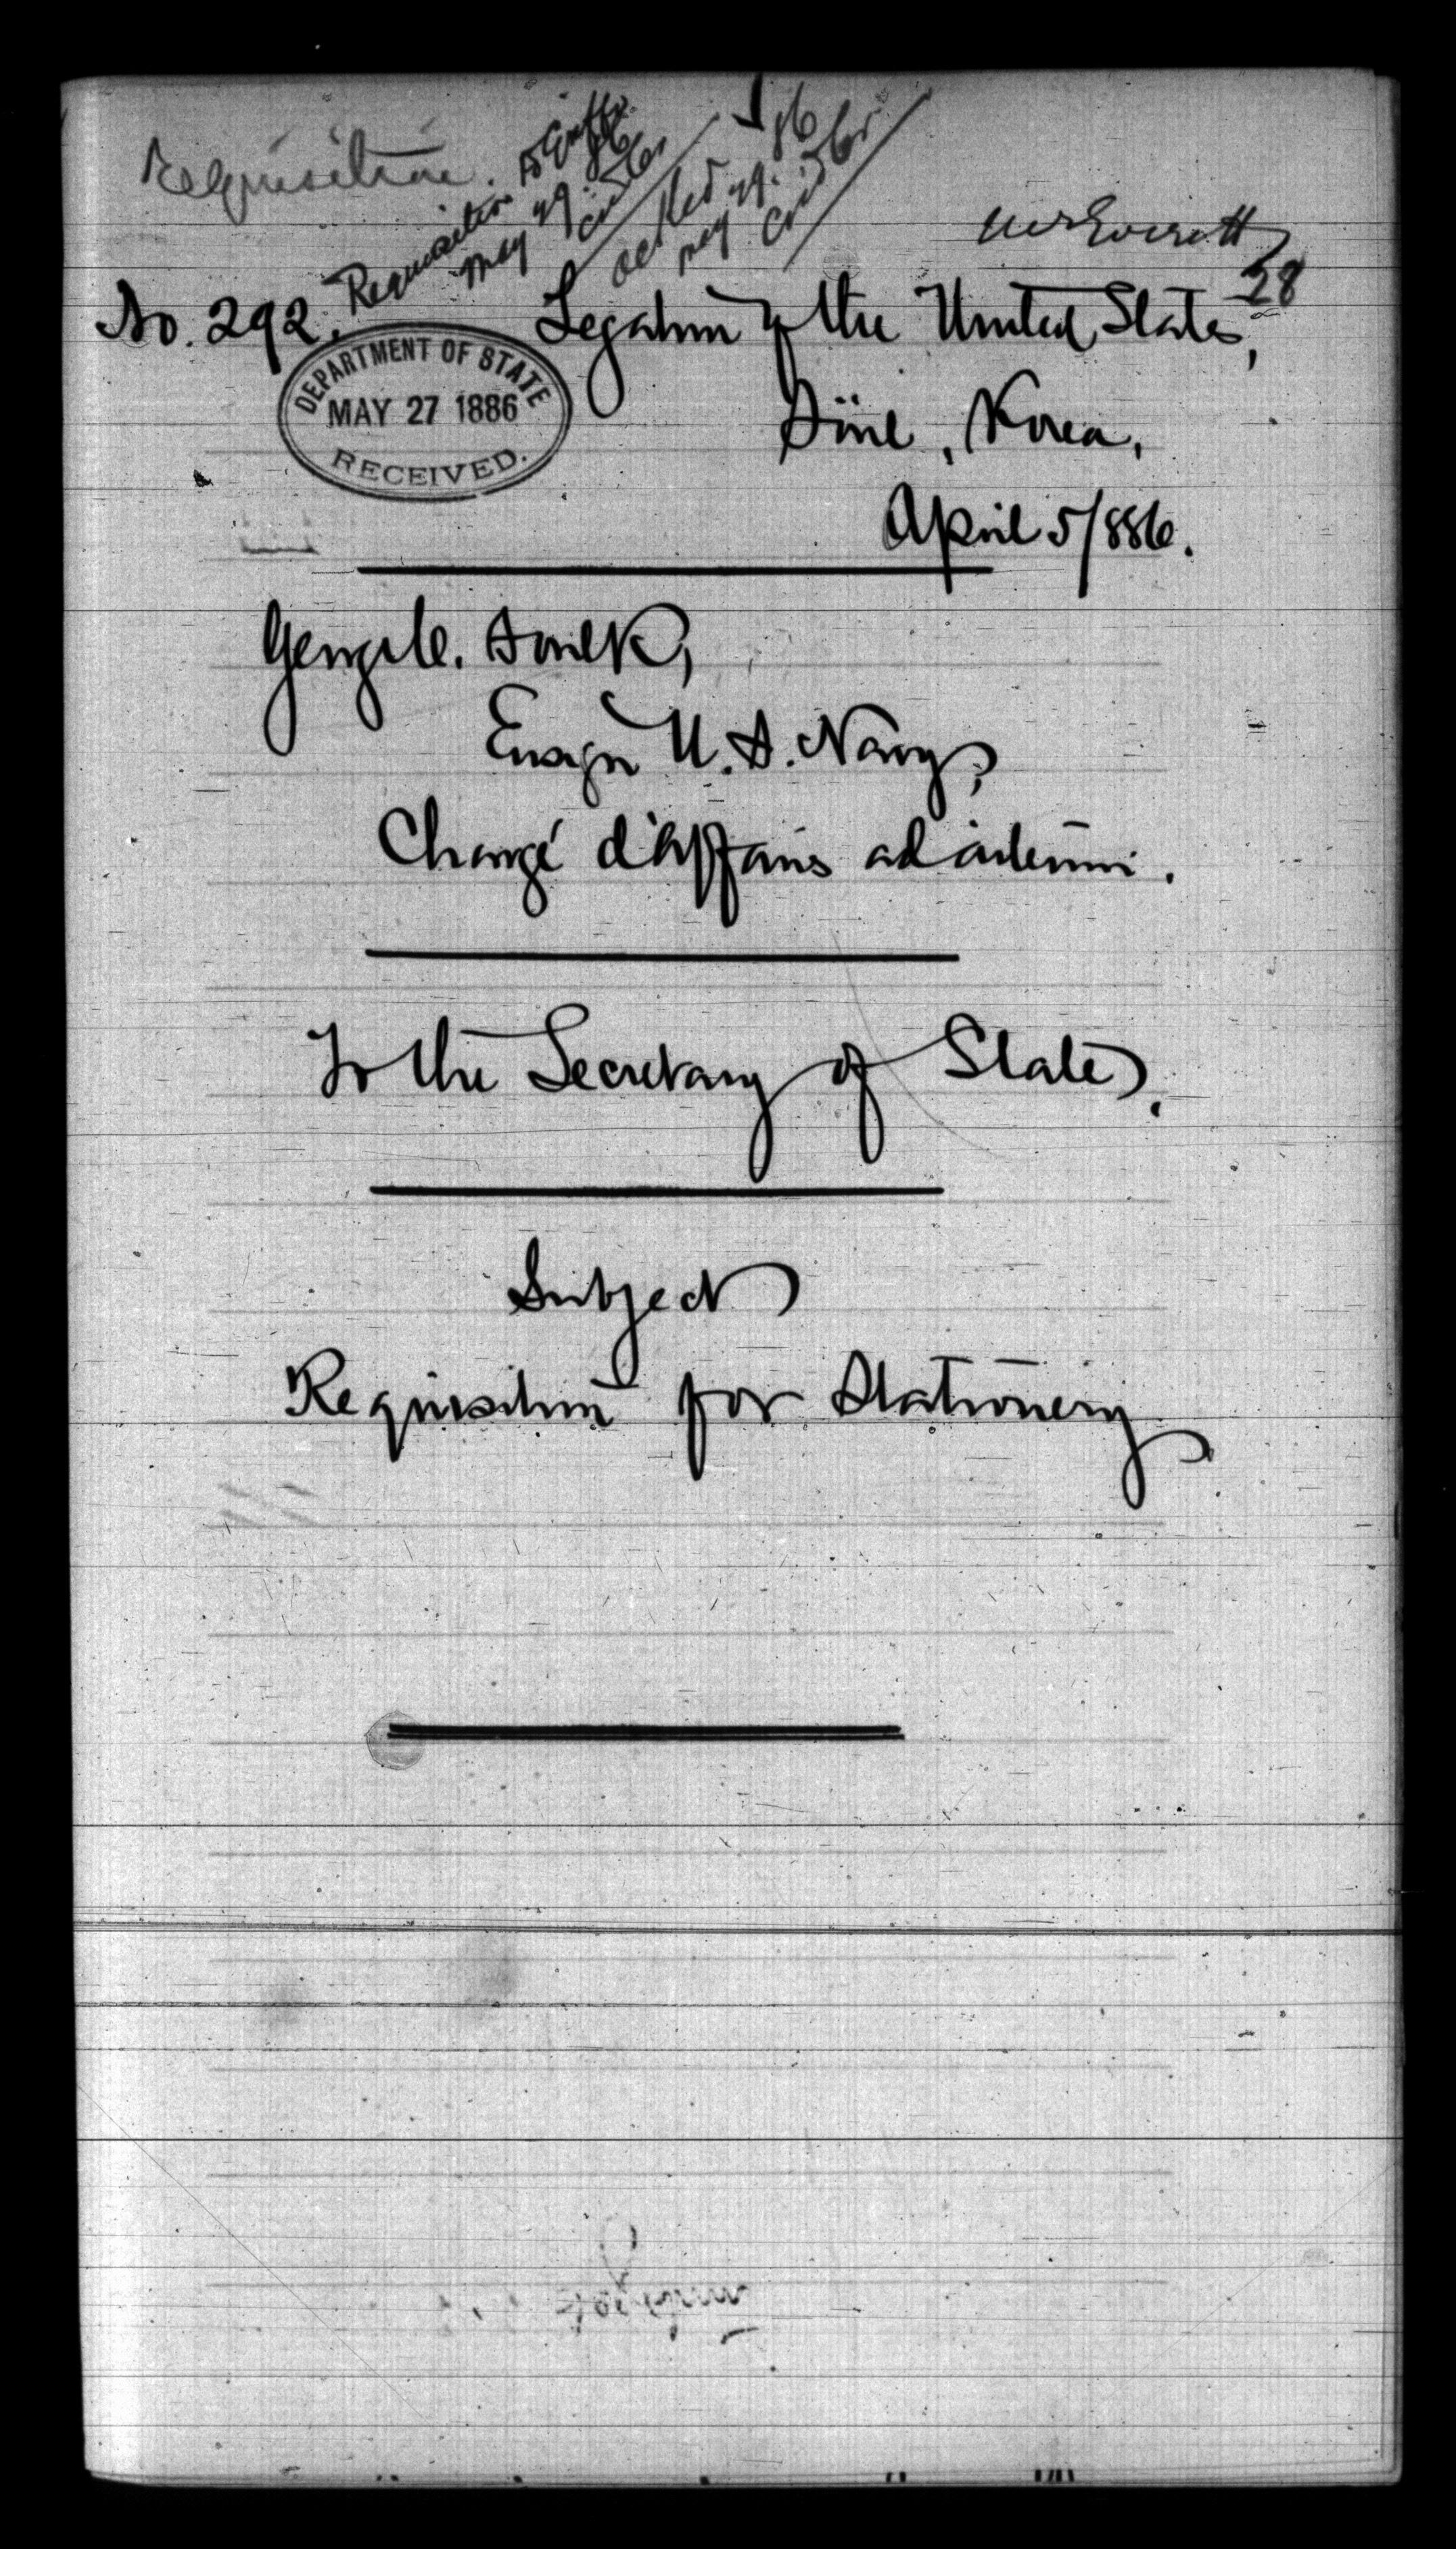 Requisition.
Requisition
May 29. 86
ack'ed
May 29. 86
Mr Everett
28
No. 292.
Legation of the United States,
DEPARTMENT OF STATE
MAY 27 1886
RECEIVED.
Söul, Korea,
April 5/886.
George C. Foulk,
Ensign U.S. Navy,
Chargé d'Affaires ad interim.
To the Secretary of State.
Subject
Requisition for Stationery